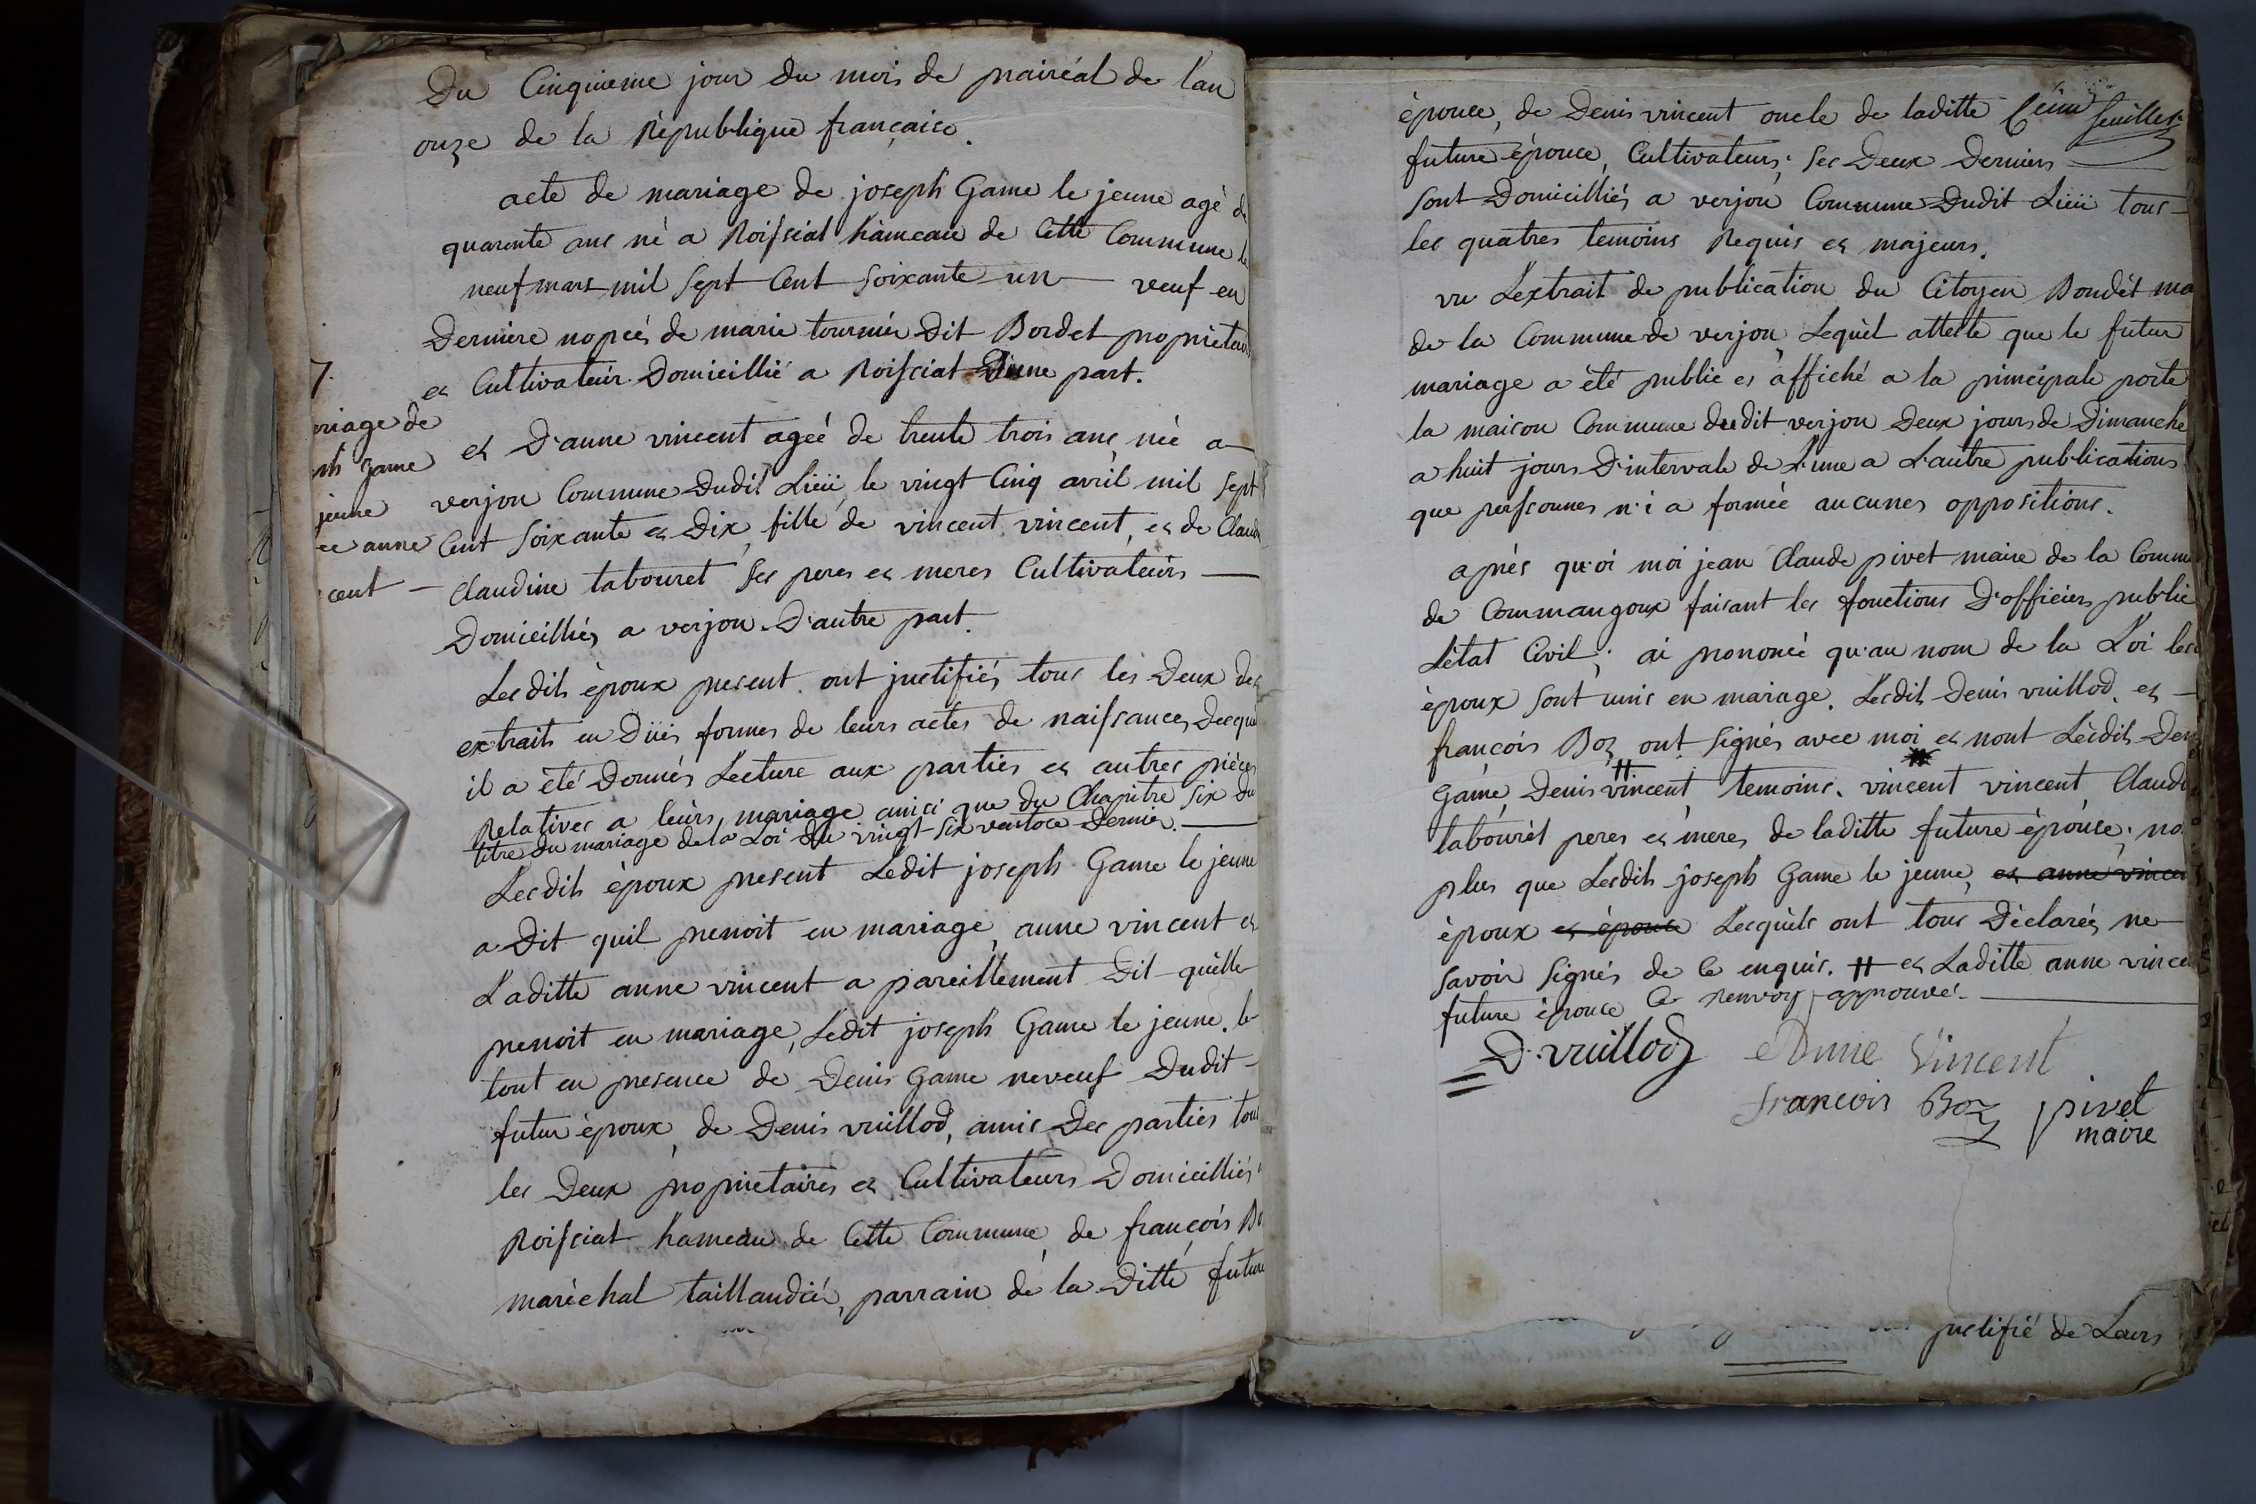 Du Cinquieme jour du mois de prairéal de l'an
onze de la République française.
acte de mariage de joseph Game le jeune agé de
quarente ans né a Roissiat hameau de Cette Commune le
neuf mars mil sept Cent soixante un — veuf en
Derniere nopces de marie tournier Dit Bordet propriétaire
et Cultivateur Domicillié a Roissiat D'une part.
7.
riage de
ph Jame
jeune
ee anne
cent —
et D'anne vincent ageé de trente trois ans, née a
verjon Commune Dudit Lieu, le vingt Cinq avril mil sept
Cent soixante et Dix, fille de vincent vincent, et de Claud
Claudine tabouret ses peres et meres Cultivateurs —
Domicilliés a verjon D'autre part.
Lesdits époux present ont justifiés tous les Deux des
extraits en Dües formes de leurs actes de naissances, Desque
il a été Donnés Lecture aux parties et autres pièces
Relatives a leurs mariage ainsi que du Chapitre six du
titre du mariage de la Loi du vingt-six ventose Dernier. —
Lesdits époux present Ledit joseph Game le jeune
a Dit quil prenoit en mariage, anne vincent et
Laditte anne vincent a pareillement Dit quelle
prenoit en mariage, Ledit joseph Game le jeune. le
tout en presence de Denis Game neveuf Dudit
futur époux, de Denis vuillod, amis Des parties tous
les Deux propriétaires et Cultivateurs Domicilliés
Roissiat hameau de Cette Commune, de françois Bo
maréchal taillandié, parrain de la Ditte future
épouce, de Denis vincent oncle de laditte
feuillet
future épouce, Cultivateurs; ses Deux Derniers
sont Domicilliés a verjon Commune Dudit Lieu tous
les quatres temoins Requis et majeurs.
vu L'extrait de publication du Citoyen Boudet ma
de la Commune de verjon, Lequel atteste que le futur
mariage a été publié et affiché a la principale porte
la maison Commune dudit verjon Deux jours de Dimanche
a huit jours D'intervale de L'une a L'autre publications
que personnes n'i a formée aucunes oppositions.
après quoi moi jean Claude pivet maire de la Commu
de Commangoux faisant les fonctions D'officiers public
L'état Civil; ai prononcé qu'au nom de la Loi les
époux sont unis en mariage. Lesdits Denis vuillod, et
françois Boz ont signés avec moi et nont Lesdits Den
Game, Denis vincent, temoins. vincent vincent, Claudi
tabouret peres et meres de laditte future épouse; no
plus que Lesdits joseph Game le jeune, et anne vincen
époux et épouse Lesquels ont tous Déclarés ne
savoir signés de Ce enquis. # et Laditte anne vince
future épouce Ce renvoy approuvé. —
D. vuillod Anne Vincent
francois Boz pivet
maire
justifié de Leurs